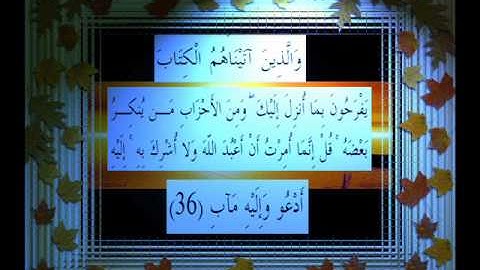 وَالَّذِينَ آتَيْنَاهُمُ الْكِتَابَ
يَفْرَحُونَ بِمَا أُنزِلَ إِلَيْكَ ۖ وَمِنَ الأَحْزَابِ مَـــن يُنكِـــرُ
بَعْضَهُ ۚ قُلْ إِنَّمَا أُمِرْتُ أَنْ أَعْبُدَ اللَّهَ وَلا أُشْرِكَ بِهِ ۚ إِلَيْهِ
أَدْعُو وَإِلَيْهِ مَآبِ (36)